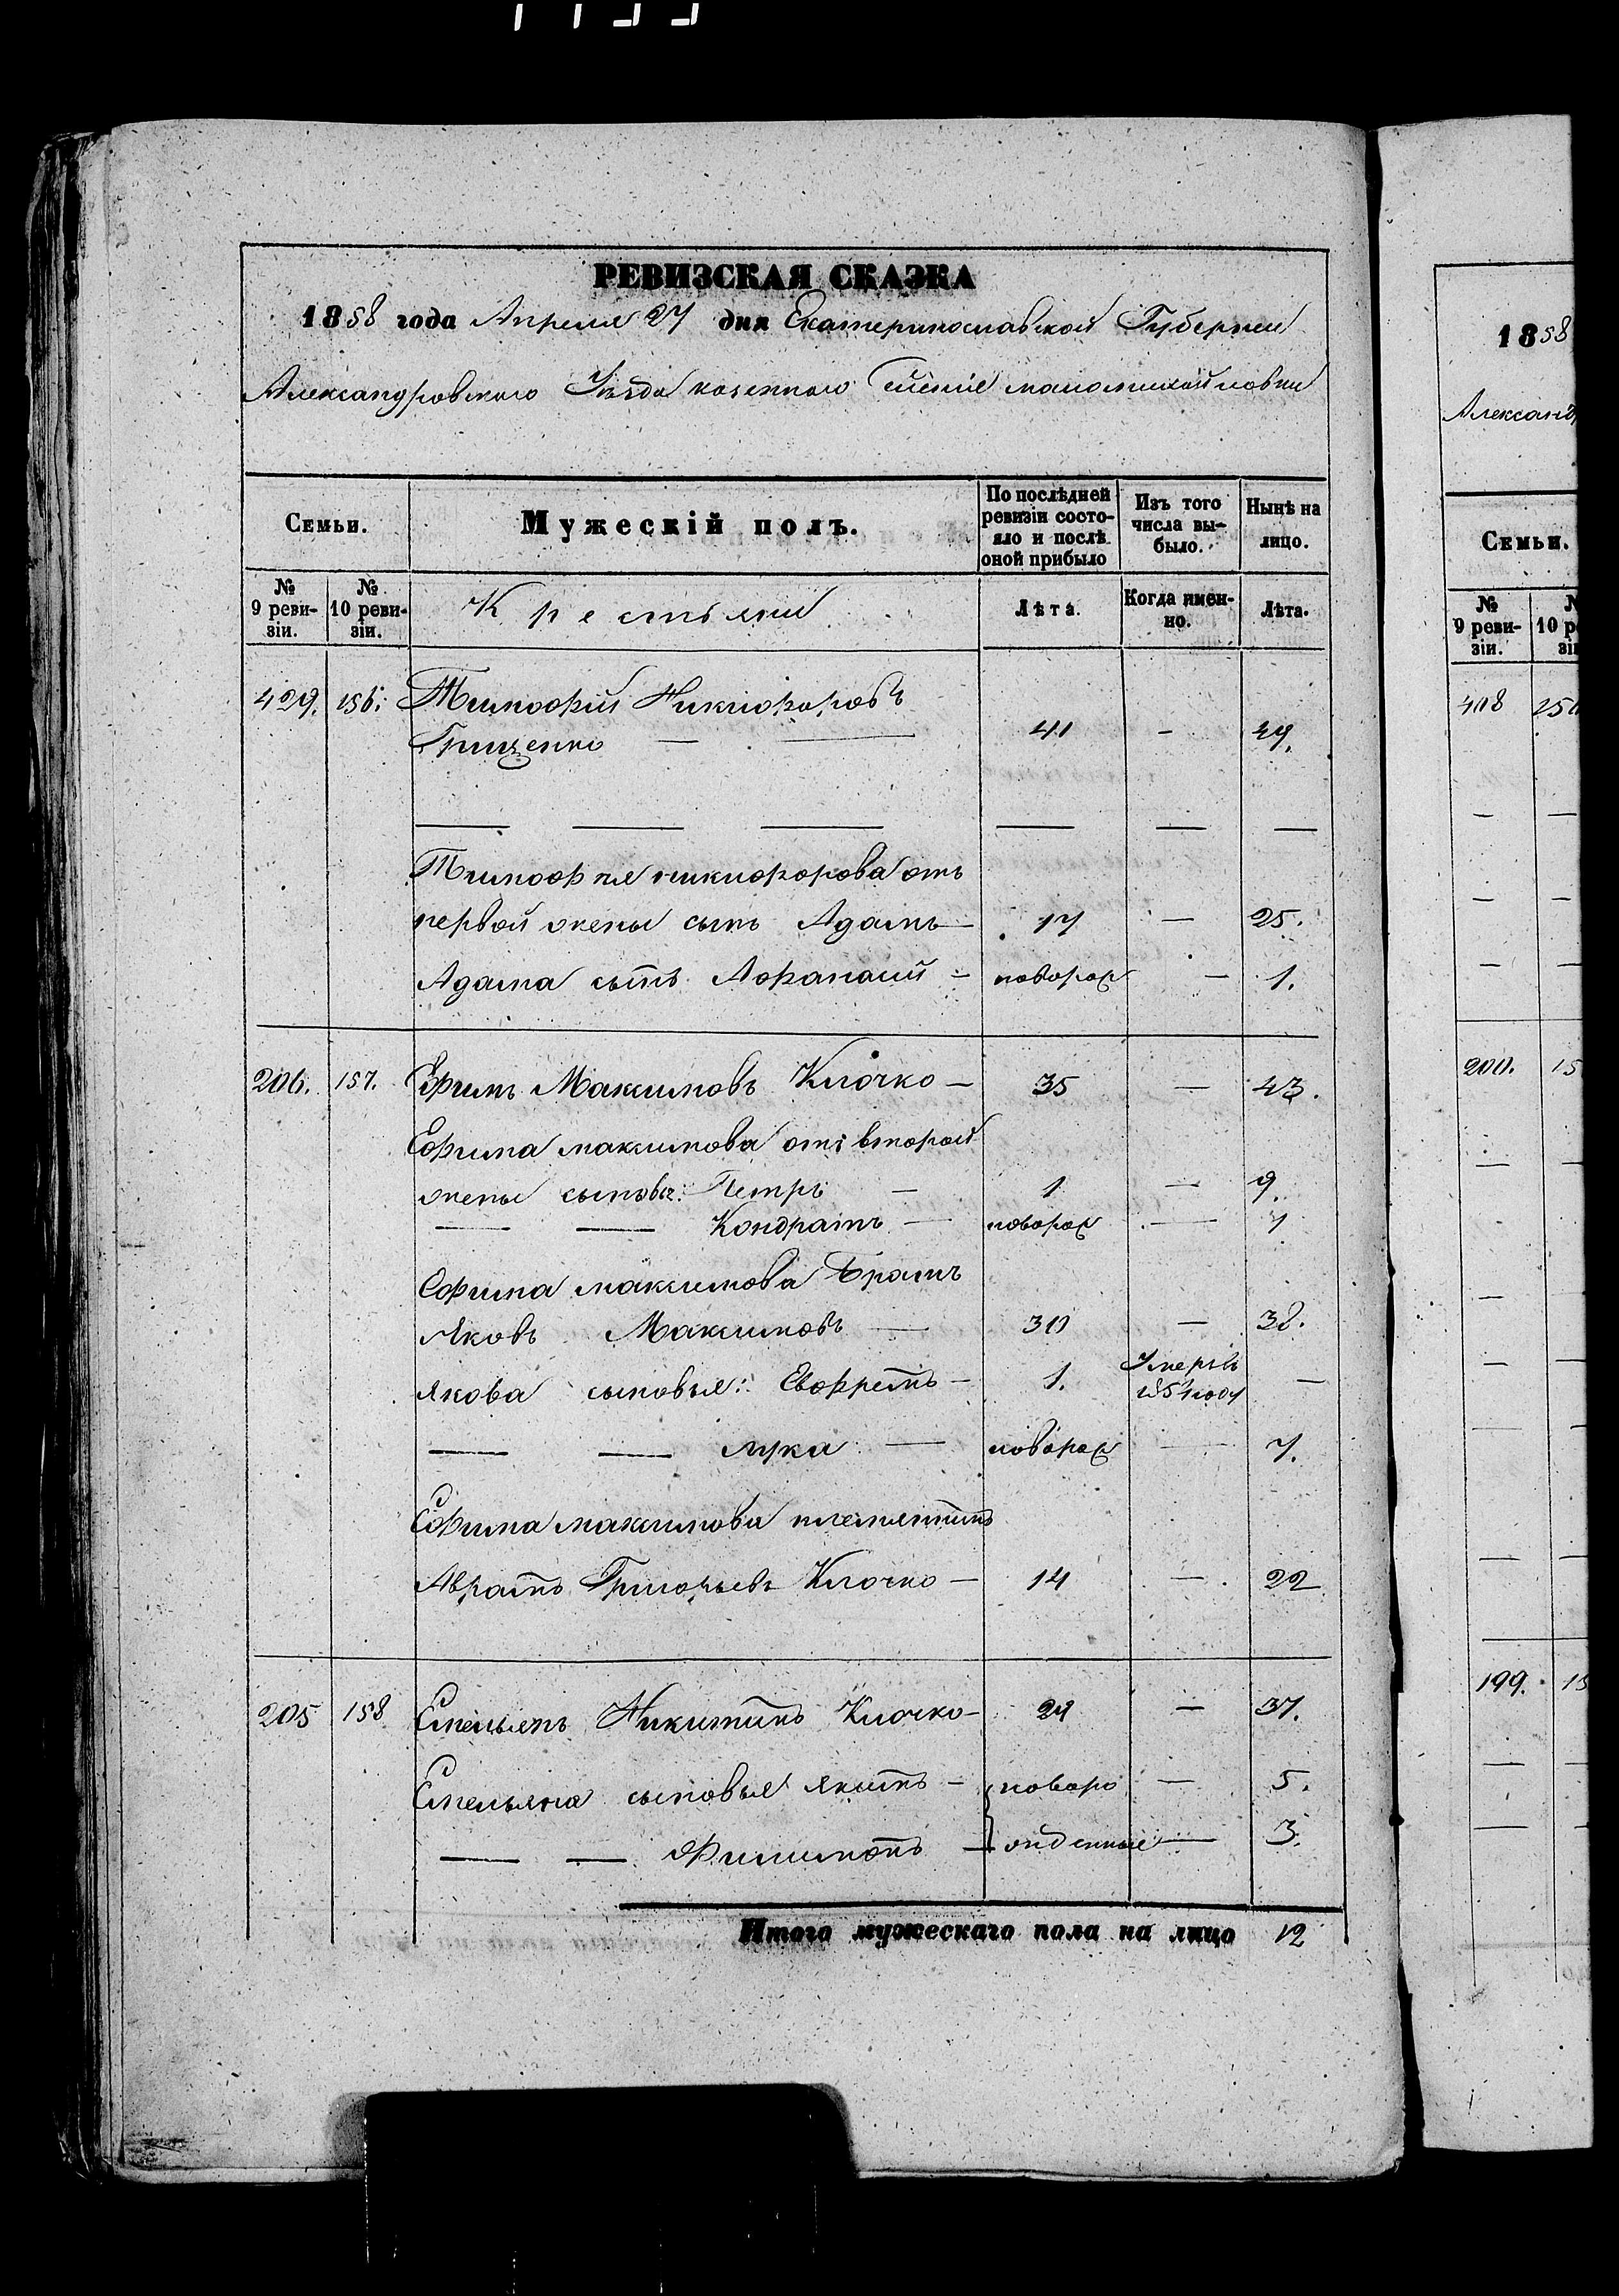 РЕВИЗСКАЯ СКАЗКА
1858 года Апреля 27 дня Екатеринославской Губернии
Александровского Уезда казенного
Семьи.
Мужескій полъ.
По послѣдней ревизіи состояло и послѣ оной прибыло
Изъ того числа выбыло.
Нынѣ на лицо.
№ 9 ревизіи.
№ 10 ревизіи.
Крестьяни
Лѣта.
Когда именно.
Лѣта.
429. 156. Тимофей Никифоровъ
Грищенко — — 41 - 49.
— — — — — —
Тимофея никифорова отъ
первой жены сынъ Адамъ — 17 — 25.
Адама сынъ Афанасий - новорож — 1.
206. 157. Ефимъ Максимовъ Клочко — 35 — 43.
Ефима максимова отъ второй
жены сыновья: Петръ — 1 — 9.
— — Кондратъ — новорож — 1
Ефима максимова братъ
Яковъ Максимовъ — 30 — 38.
Якова сыновья: — 1. Умеръ въ 1851 году —
— — лука — новорож — 7.
Ефима максимова племянникъ
Аврамъ Григорьевъ Клочко — 14 — 22
205 158 Емельянъ Никитинъ Клочко — 29 — 37.
Емельяна сыновья Якимъ — новоро — 5.
— — Филимонъ — жденные — 3.
Итого мужескаго пола на лицо 12
1858
Семьи.
№ 9 ревизіи.
408
200.
199.